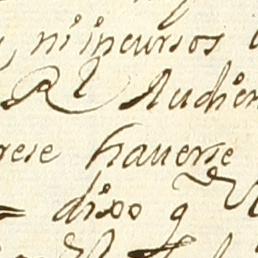 ni incursos
Rl Audien
rese hauerse
= dixo q